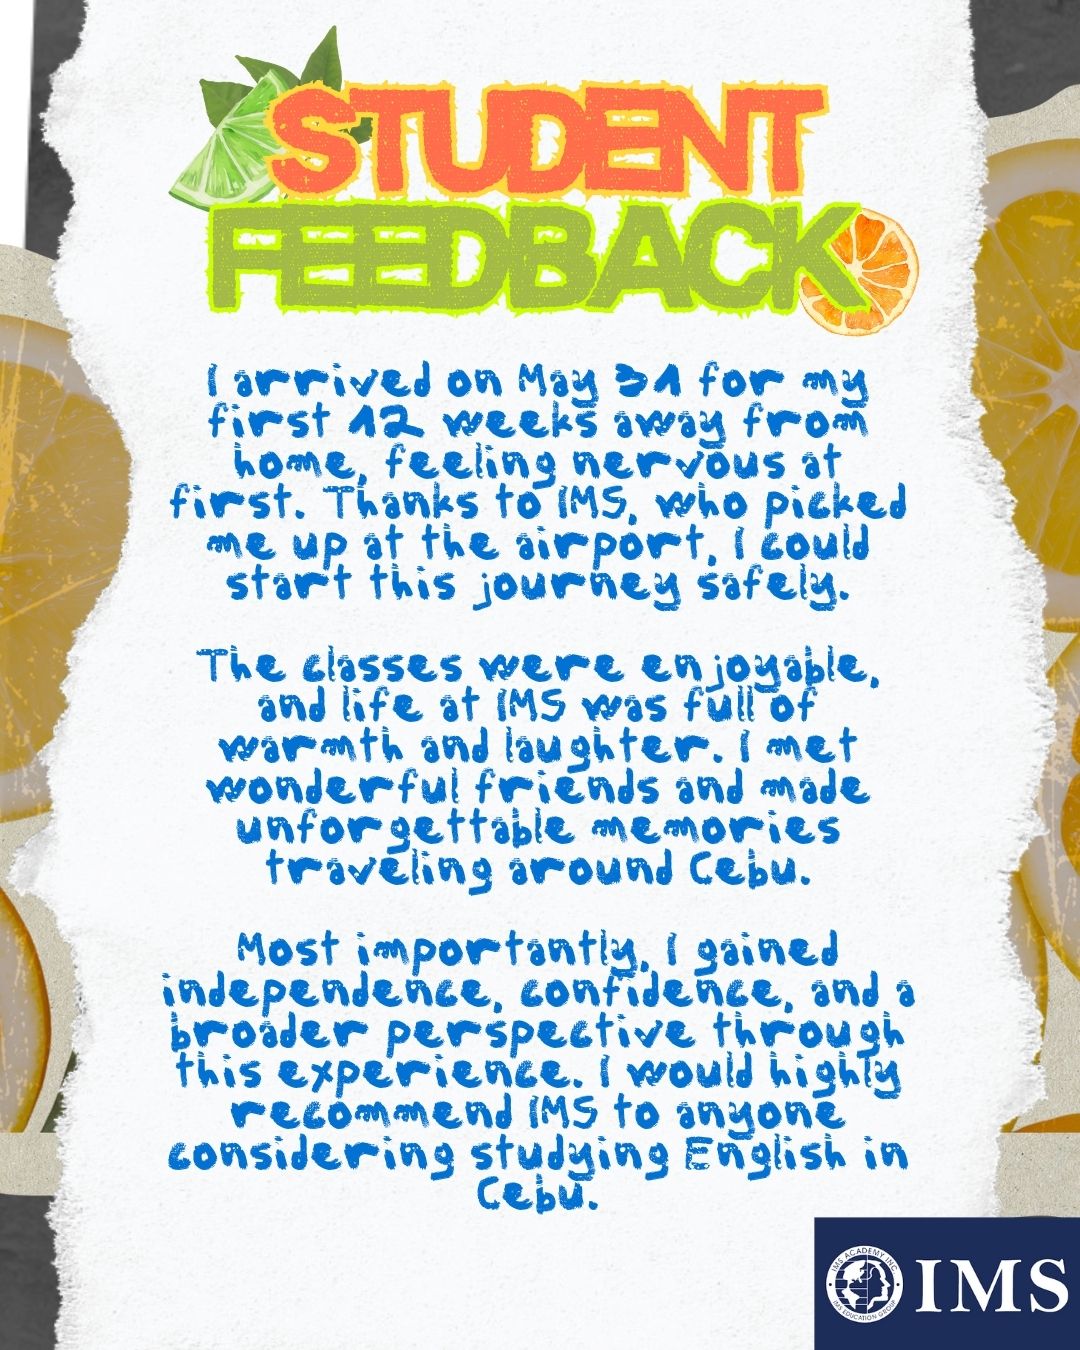 STUDENT
FEEDBACK
I arrived on May 31 for my
first 12 weeks away from
home, feeling nervous at
first. Thanks to IMS, who picked
me up at the airport, I could
start this journey safely.
The classes were enjoyable,
and life at IMS was full of
warmth and laughter. I met
wonderful friends and made
unforgettable memories
traveling around Cebu.
Most importantly, I gained
independence, confidence, and a
broader perspective through
this experience. I would highly
recommend IMS to anyone
considering studying English in
Cebu.
IMS ACADEMY INC
IMS EDUCATION GROUP
IMS